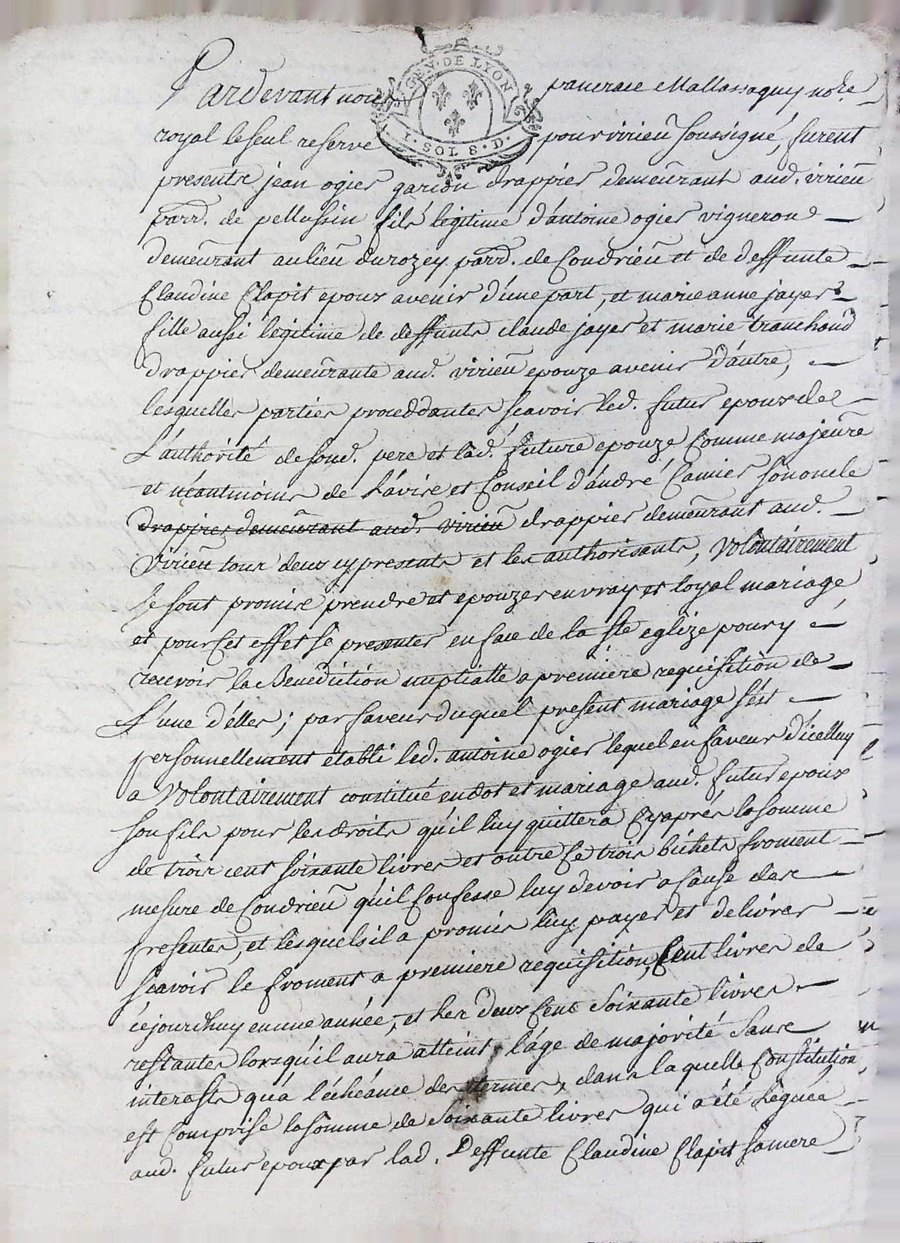 GEN. DE LYON
1. SOL 8. D.
Pardevant nous pancrace Mallassagny no.re
royal le seul reservé pour virieu soussigné, furent
presents jean ogier garçon drappier demeurant aud. virieu
parr. de pellussin fils legitime d'antoine ogier vigneron
demeurant au lieu du rozey parr. de Condrieu et de deffunte
Claudine Clapit epoux avenir d'une part, et marie anne jayer
fille aussi legitime de deffunts claude jayer et marie tranchand
drappier demeurante aud. virieu epouze avenir d'autre,
lesquelles parties proceddantes scavoir led. futur epoux de
L'authorité de sond. pere et lad. future epouze Comme majeure
et néantmoins de L'avis et Conseil d'andré Camier son oncle
drappier demeurant aud. virieu drappier demeurant aud.
Virieu tous deux cy presents et les authorisants, volontairement
se sont promis prendre et epouzer en vray et loyal mariage
et pour cet effet se presenter en face de la ste eglize pour y
recevoir la Benediction nuptialle a premiere requisition de
L'une d'elles; par faveur duquel present mariage s'est
personnellement établi led. antoine ogier lequel en faveur d'icelluy
a volontairement constitué en dot et mariage aud. futur epoux
son fils pour les droits qu'il luy quittera Cy après la somme
de trois cent soixante livres et outre Ce trois bichets froment
mesure de Condrieu qu'il Confesse luy devoir a Cause des
presentes, et lesquels il a promis luy payer et delivrer
scavoir le froment a premiere requisition, Cent livres de
cejourdhuy en une année, et les deux Cent soixante livres
restantes lorsqu'il aura atteint l'âge de majorité sans
interests qu'a l'échéance des termes, dans laquelle Constitution
est Comprise la somme de soixante livres qui a été Léguée
aud. futur epoux par lad. Deffunte Claudine Clapit sa mere